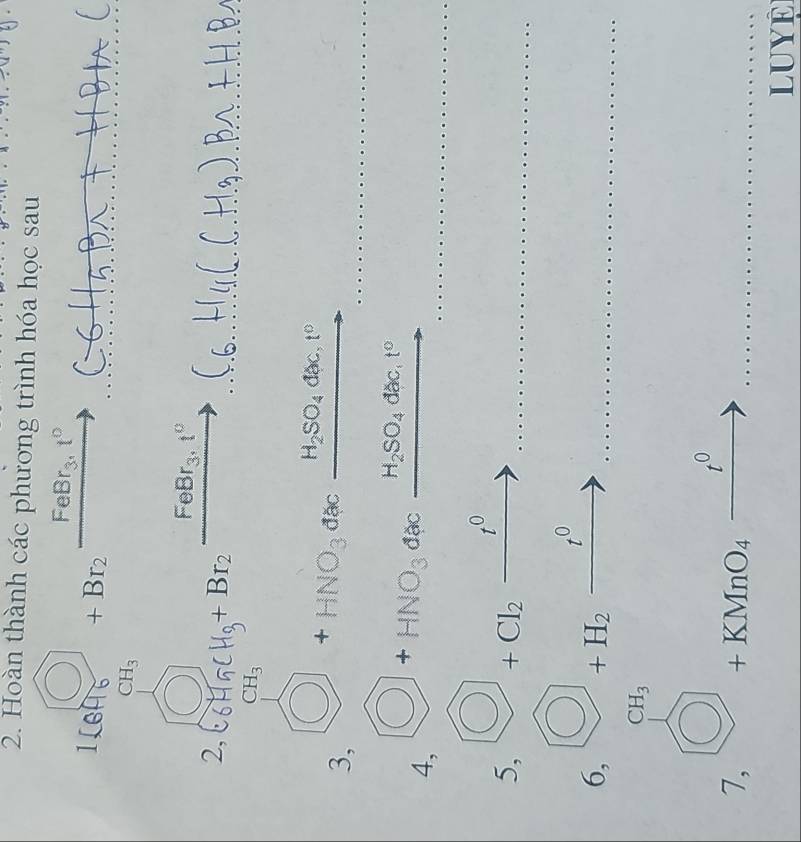 2. Hoàn thành các phương trình hóa học sau
1, C6H6 + Br₂ FeBr₃, t⁰ C6H5Br + HBr
CH₃
2, C6H5CH3 + Br₂ FeBr₃, t⁰ C6H4(CH3)Br + HBr
CH₃
3, + HNO₃ đặc H₂SO₄ đặc, t⁰
4, + HNO₃ đặc H₂SO₄ đặc, t⁰
5, + Cl₂ t⁰
6, + H₂ t⁰
CH₃
7, + KMnO₄ t⁰
LUYỆ